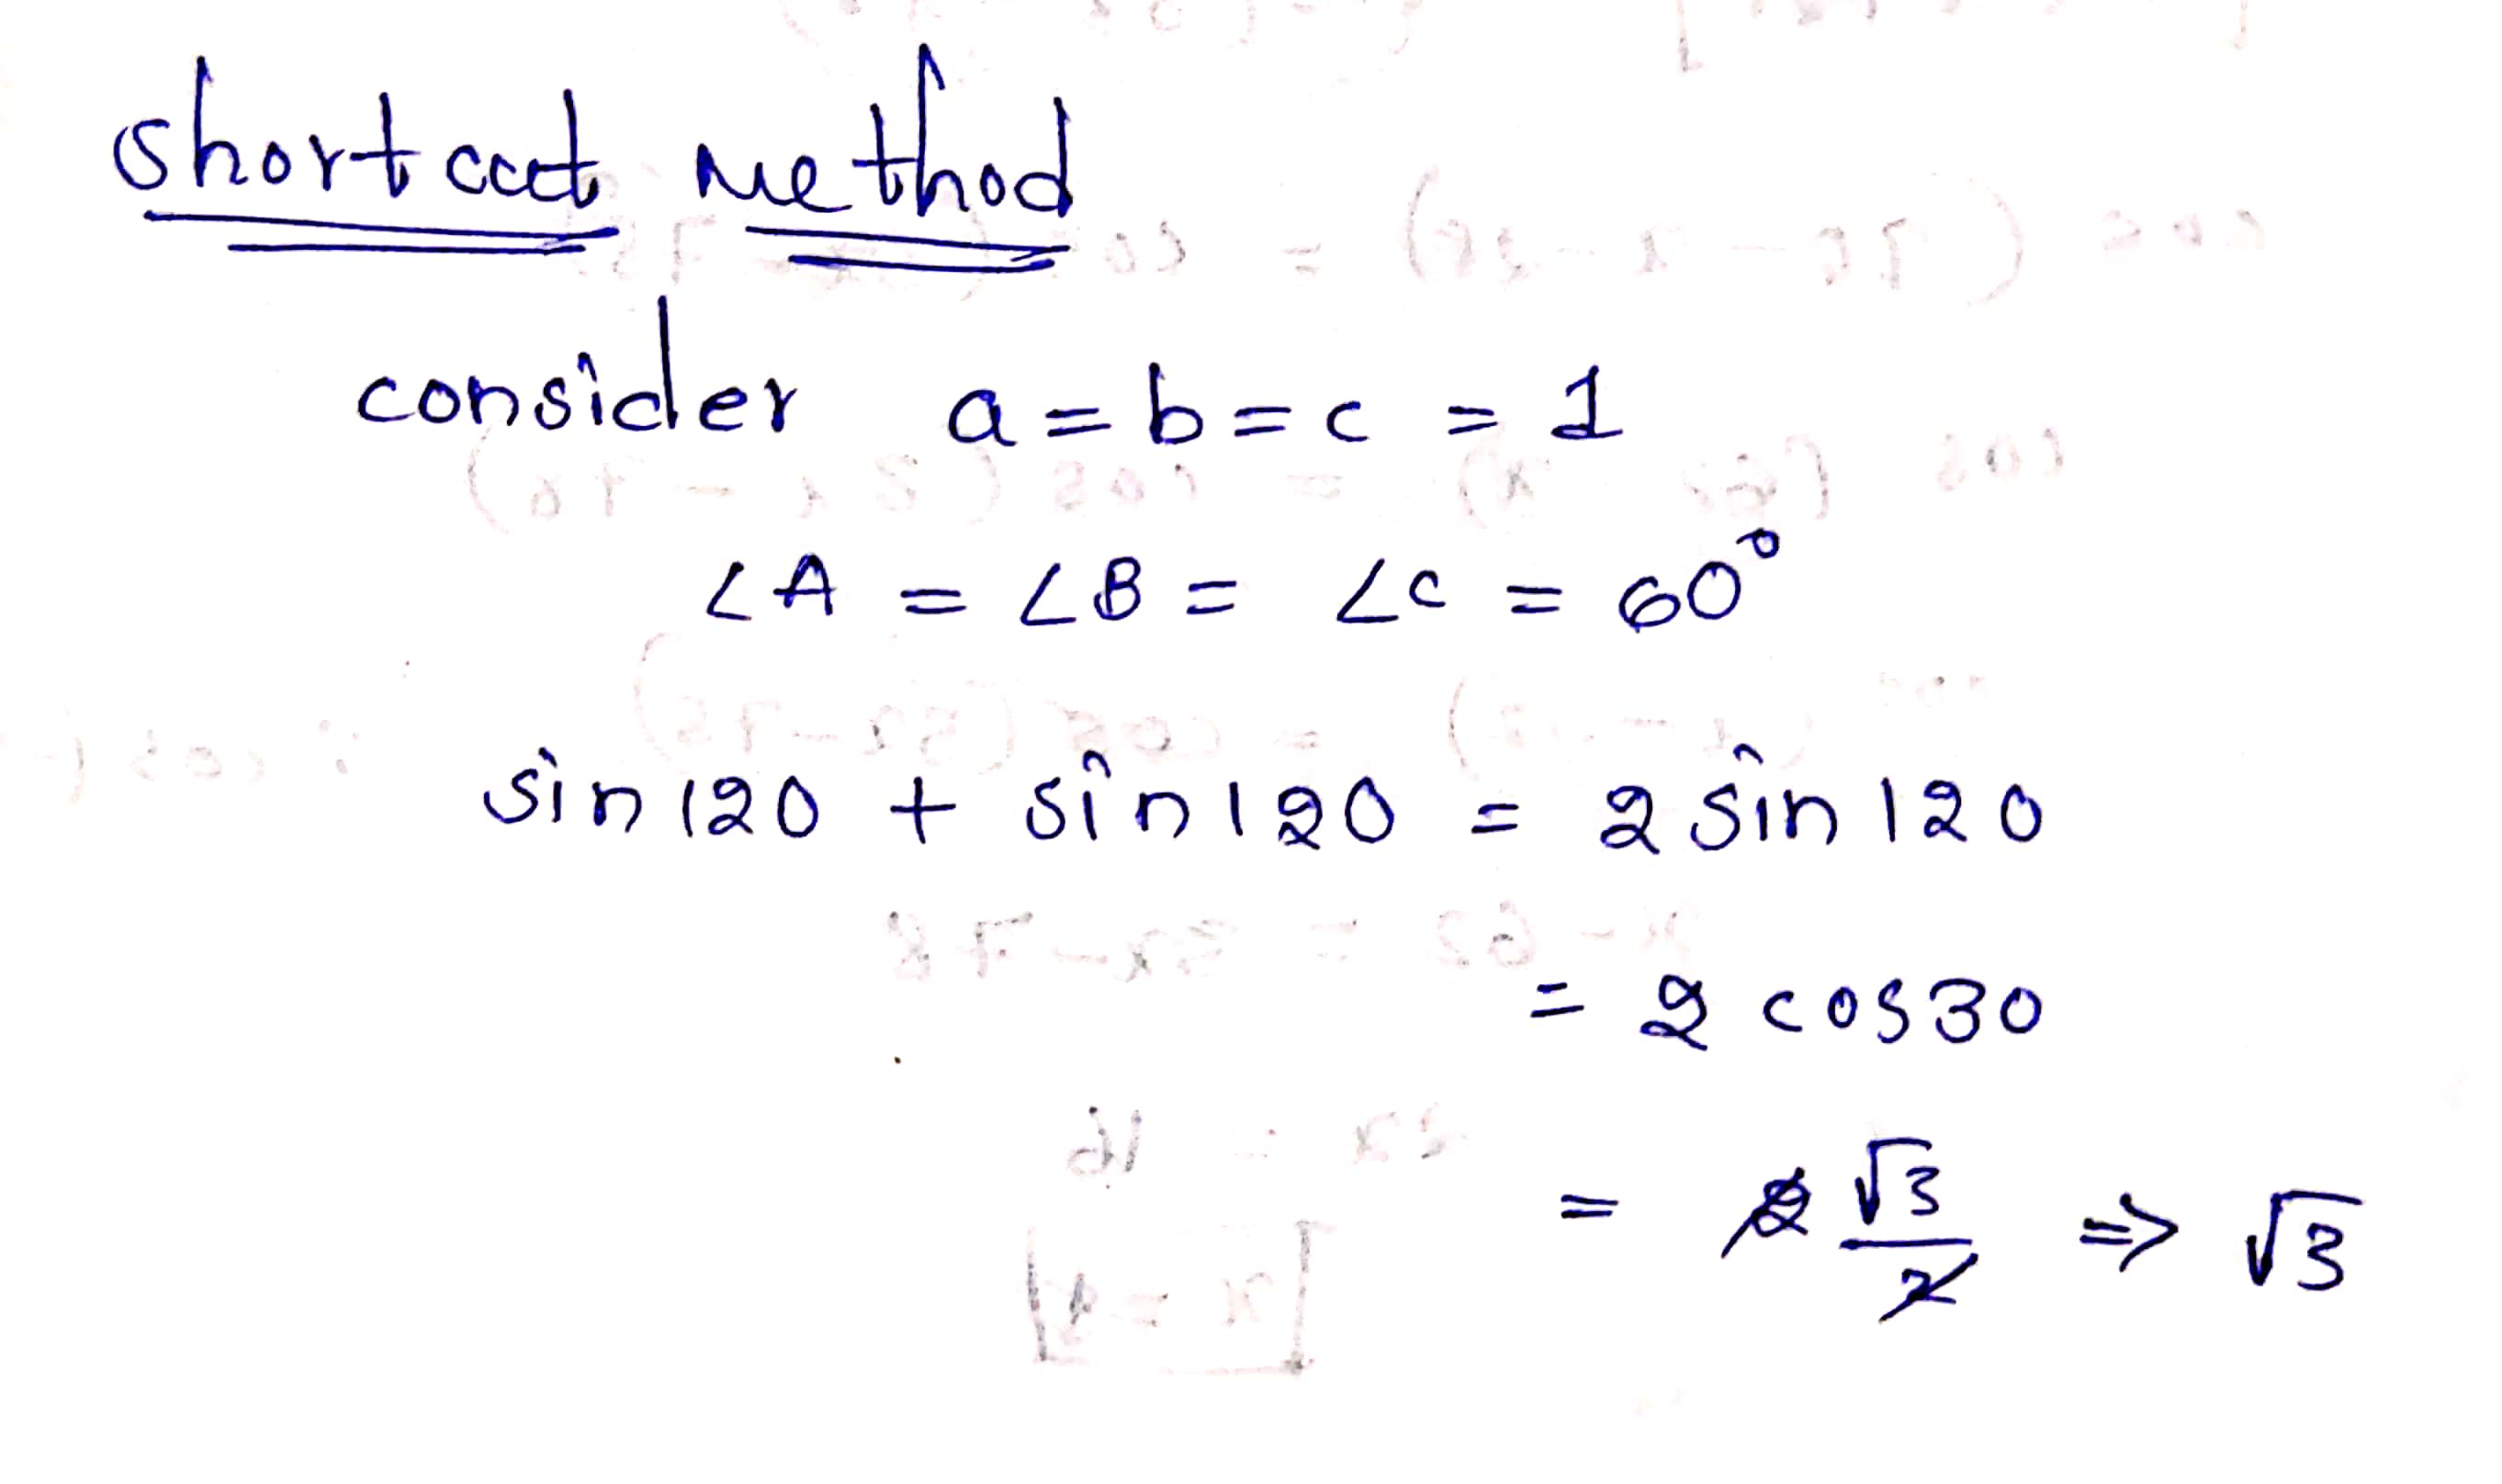 shortcut method
consider a = b = c = 1
∠A = ∠B = ∠C = 60°
sin 120 + sin 120 = 2 sin 120
= 2 cos 30
= 2 √3/2 ⇒ √3